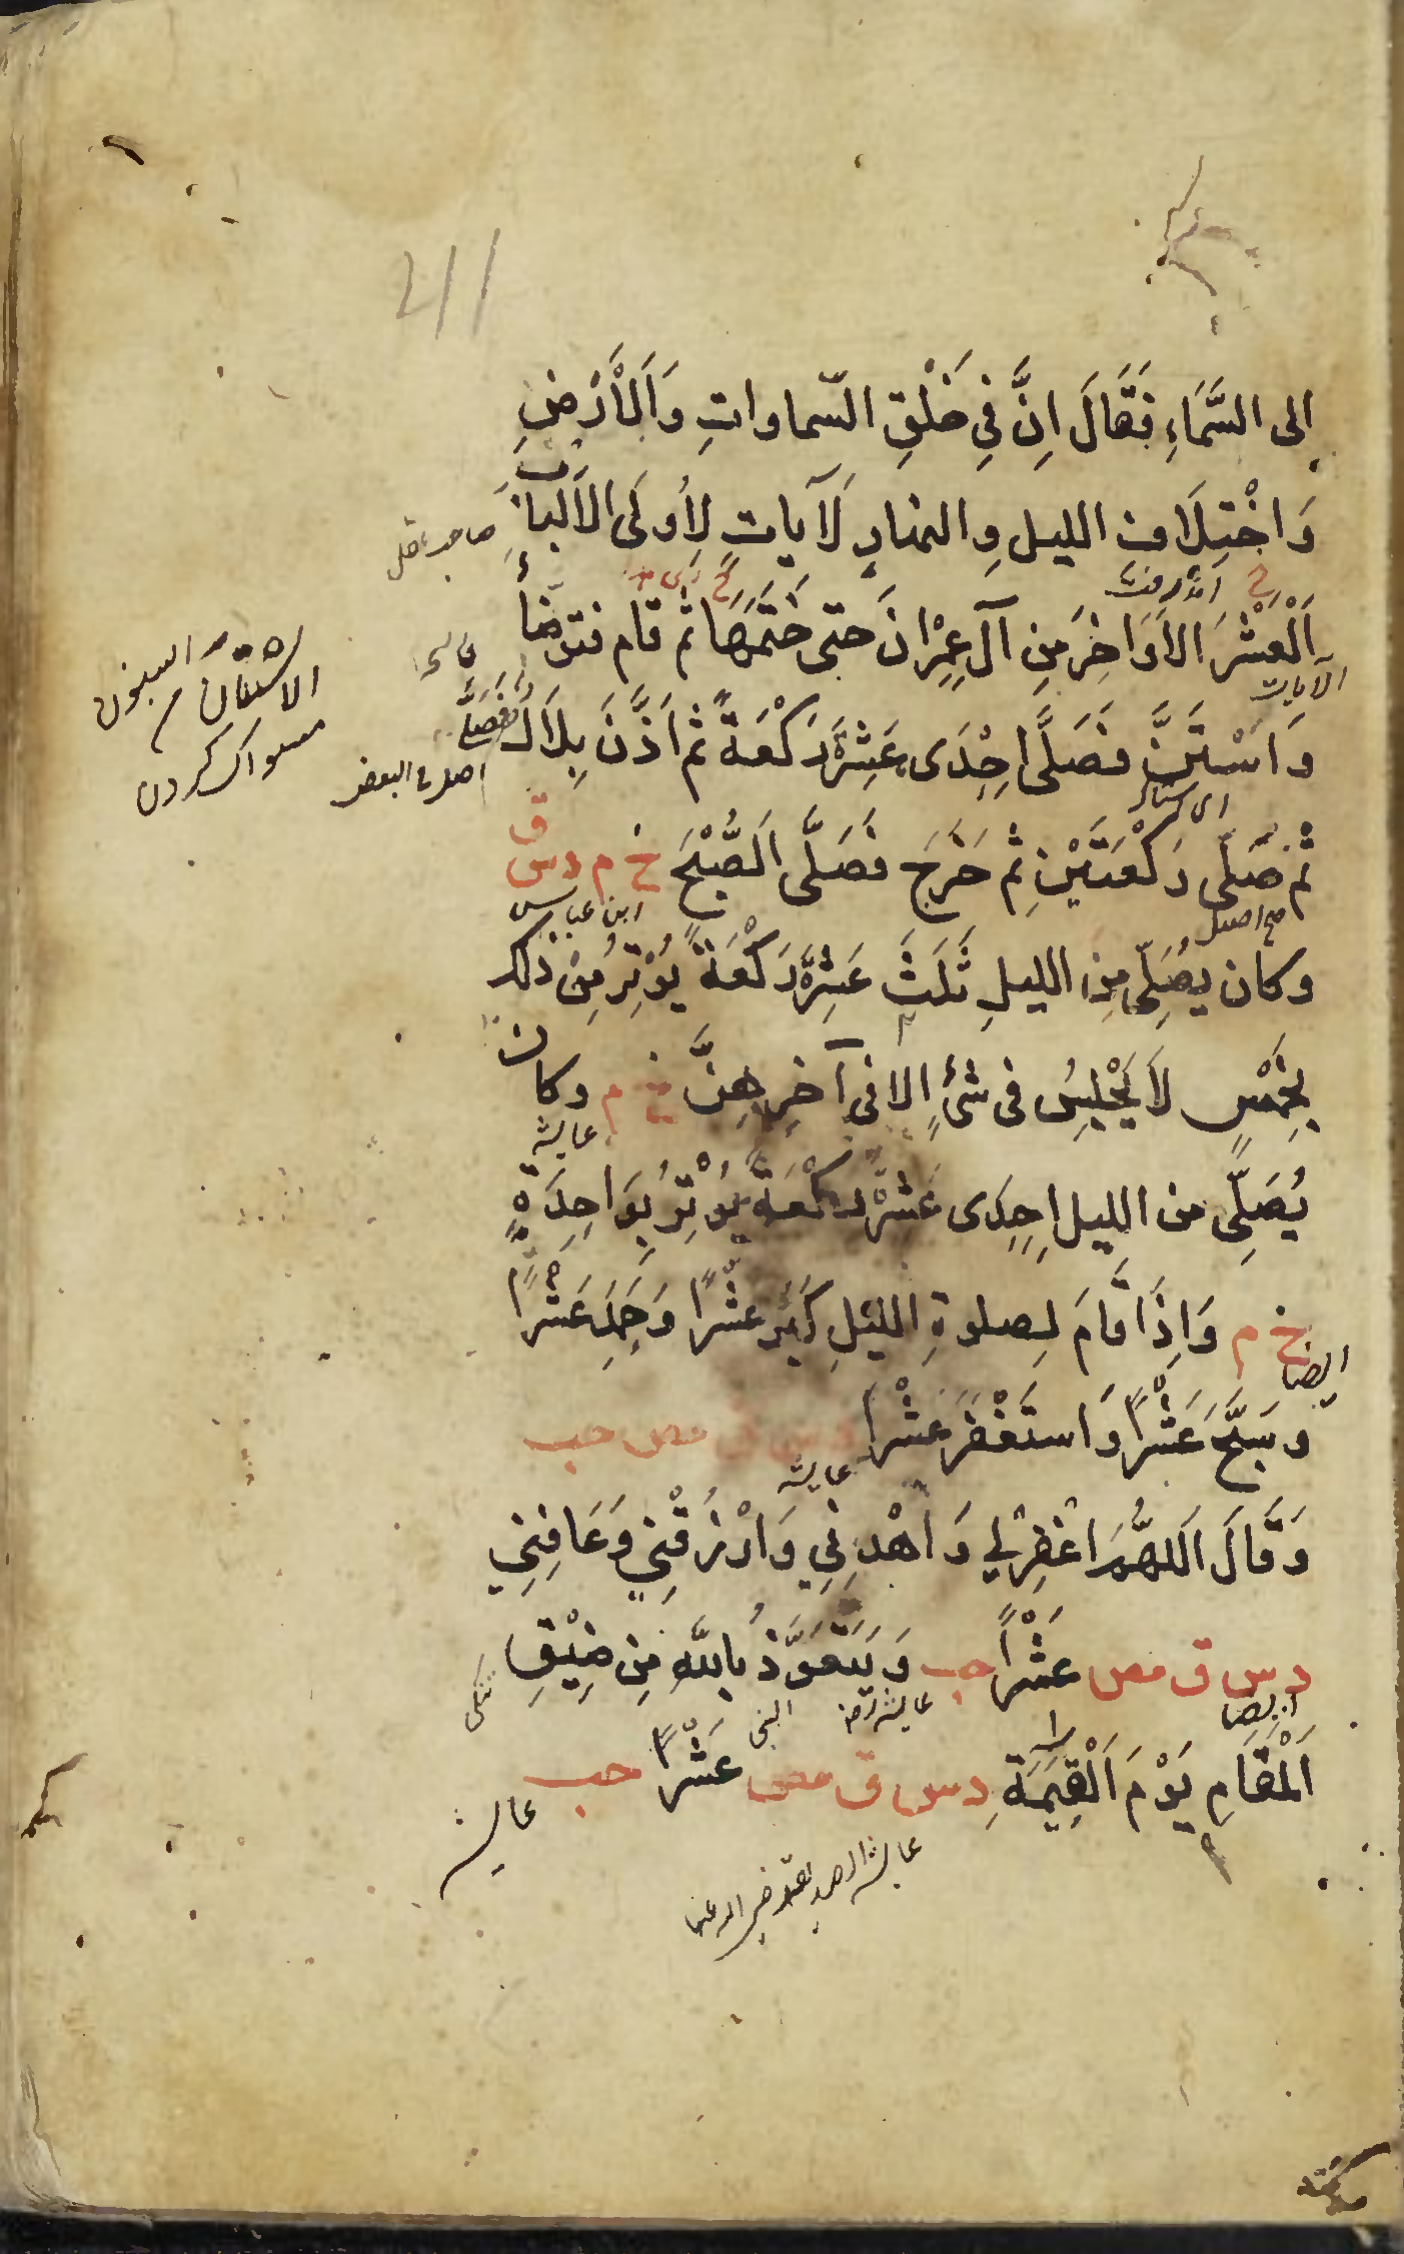 اِلى السَّمَاءِ فَقَالَ اِنَّ فِي خَلْقِ السّماواتِ وَالْأَرْضِ
وَاخْتِلَافِ الليلِ والنهارِ لَآيَاتٍ لِأُولى الاَلْبابِ
اَلْعَشْرَ الاَوَاخِرَ مِن آلِ عِمْرانَ حتى خَتَمَهَا ثم قام فتوضأ
الآيات
وَاسْتَنَّ فَصَلَّى اِحْدَى عَشْرَةَ رَكْعَةً ثم اَذَّنَ بِلَالٌ فَصَلَّى
الاستنان
مسواك كردن
اصل
ثم صَلّى رَكْعَتَيْنِ ثم خَرَجَ فَصَلَّى اَلصُّبْحَ خ م د س ق
ابن عباس
وكان يُصَلِّى مِن الليلِ ثَلَثَ عَشْرَةَ رَكْعَةً يُوْتِرُ مِنْ ذلك
بِخَمْسٍ لَا يَجْلِسُ فى شئٍ اِلا فى آخِرِهِنَّ خ م وكان
عايشة
يُصَلِّى من الليل اِحْدَى عَشْرَةَ رَكْعَةً يُوْتِرُ بِوَاحِدَةٍ
خ م وَاِذَا قَامَ لِصلوةِ الليْلِ كَبَّرَ عَشْرًا وَحَمِدَ عَشْرًا
ايضا
وَسَبَّحَ عَشْرًا وَاستَغْفَرَ عَشْرًا د س ق مص حب
عايشة
وَقَالَ اَللهُمَّ اغْفِرْ لِي وَاهْدِنِي وَارْزُقْنِي وَعَافِنِي
د س ق مص عَشْرًا حب وَيَتَعَوَّذُ بِاللهِ مِن ضِيْقِ
ايضا
اَلْمَقَامِ يَوْمَ اَلْقِيمَةِ د س ق مص عَشْرًا حب
عايشة